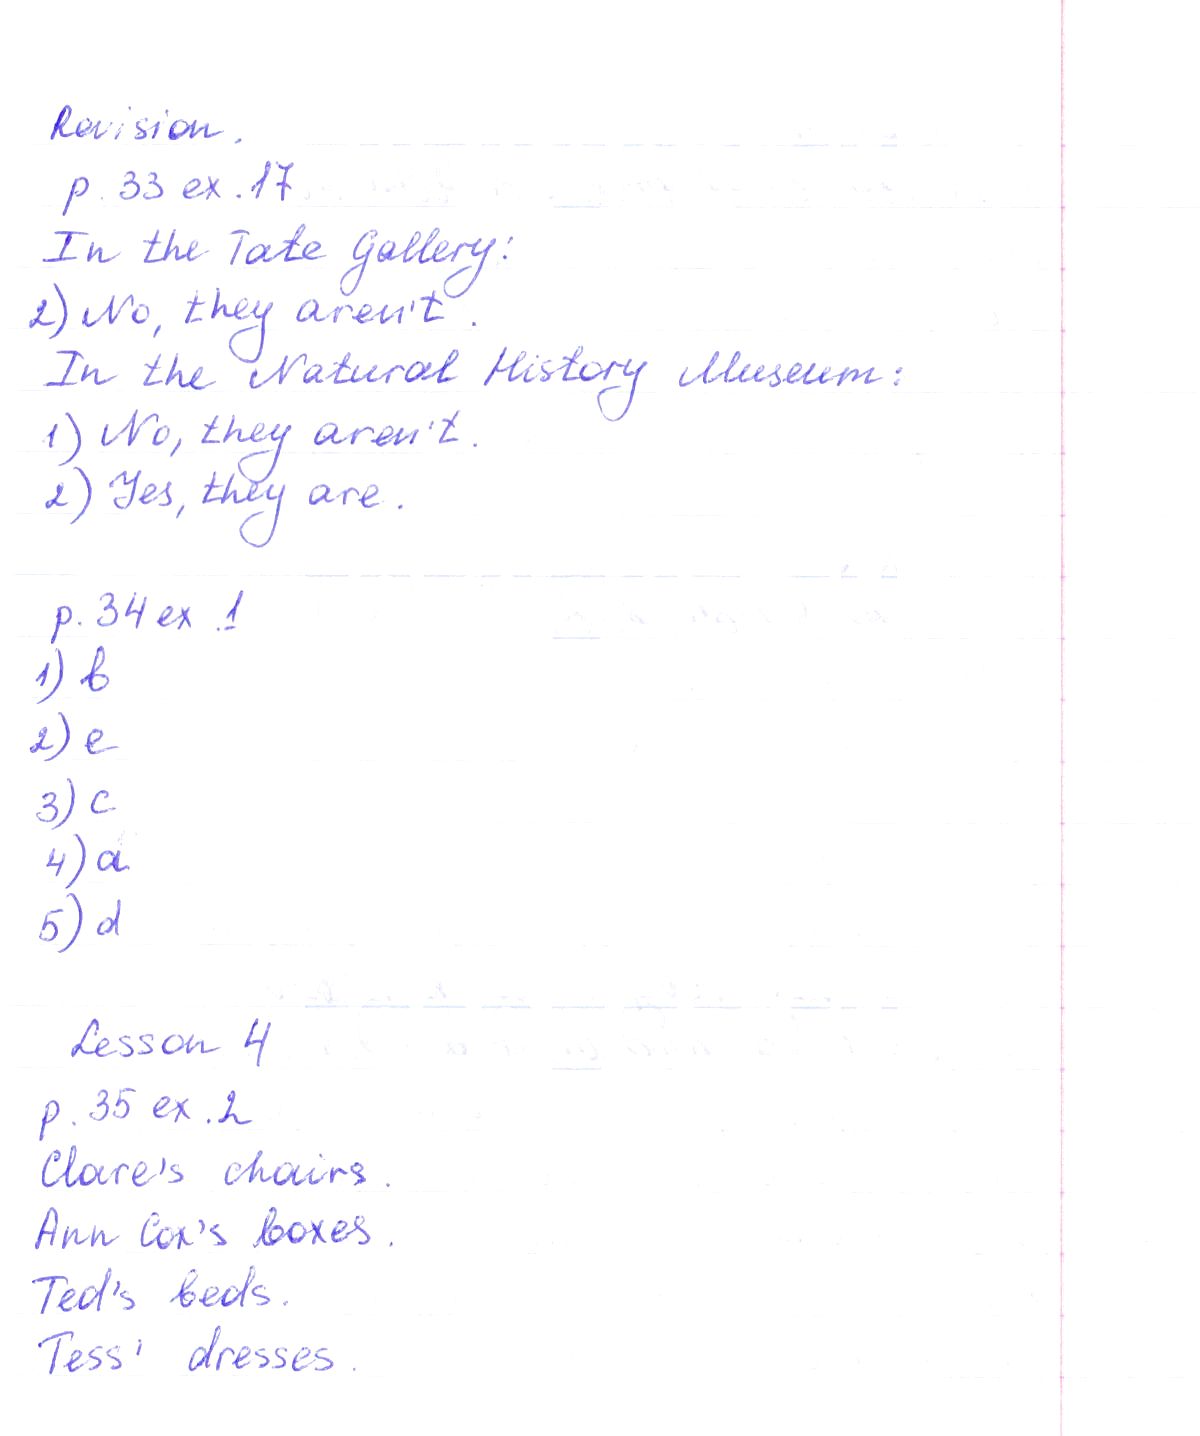 Revision.
p. 33 ex. 17
In the Tate Gallery:
2) No, they aren't.
In the Natural History Museum:
1) No, they aren't.
2) Yes, they are.
p. 34 ex. 1
1) b
2) e
3) c
4) a
5) d
Lesson 4
p. 35 ex. 2
Clare's chairs.
Ann Cox's boxes.
Ted's beds.
Tess' dresses.